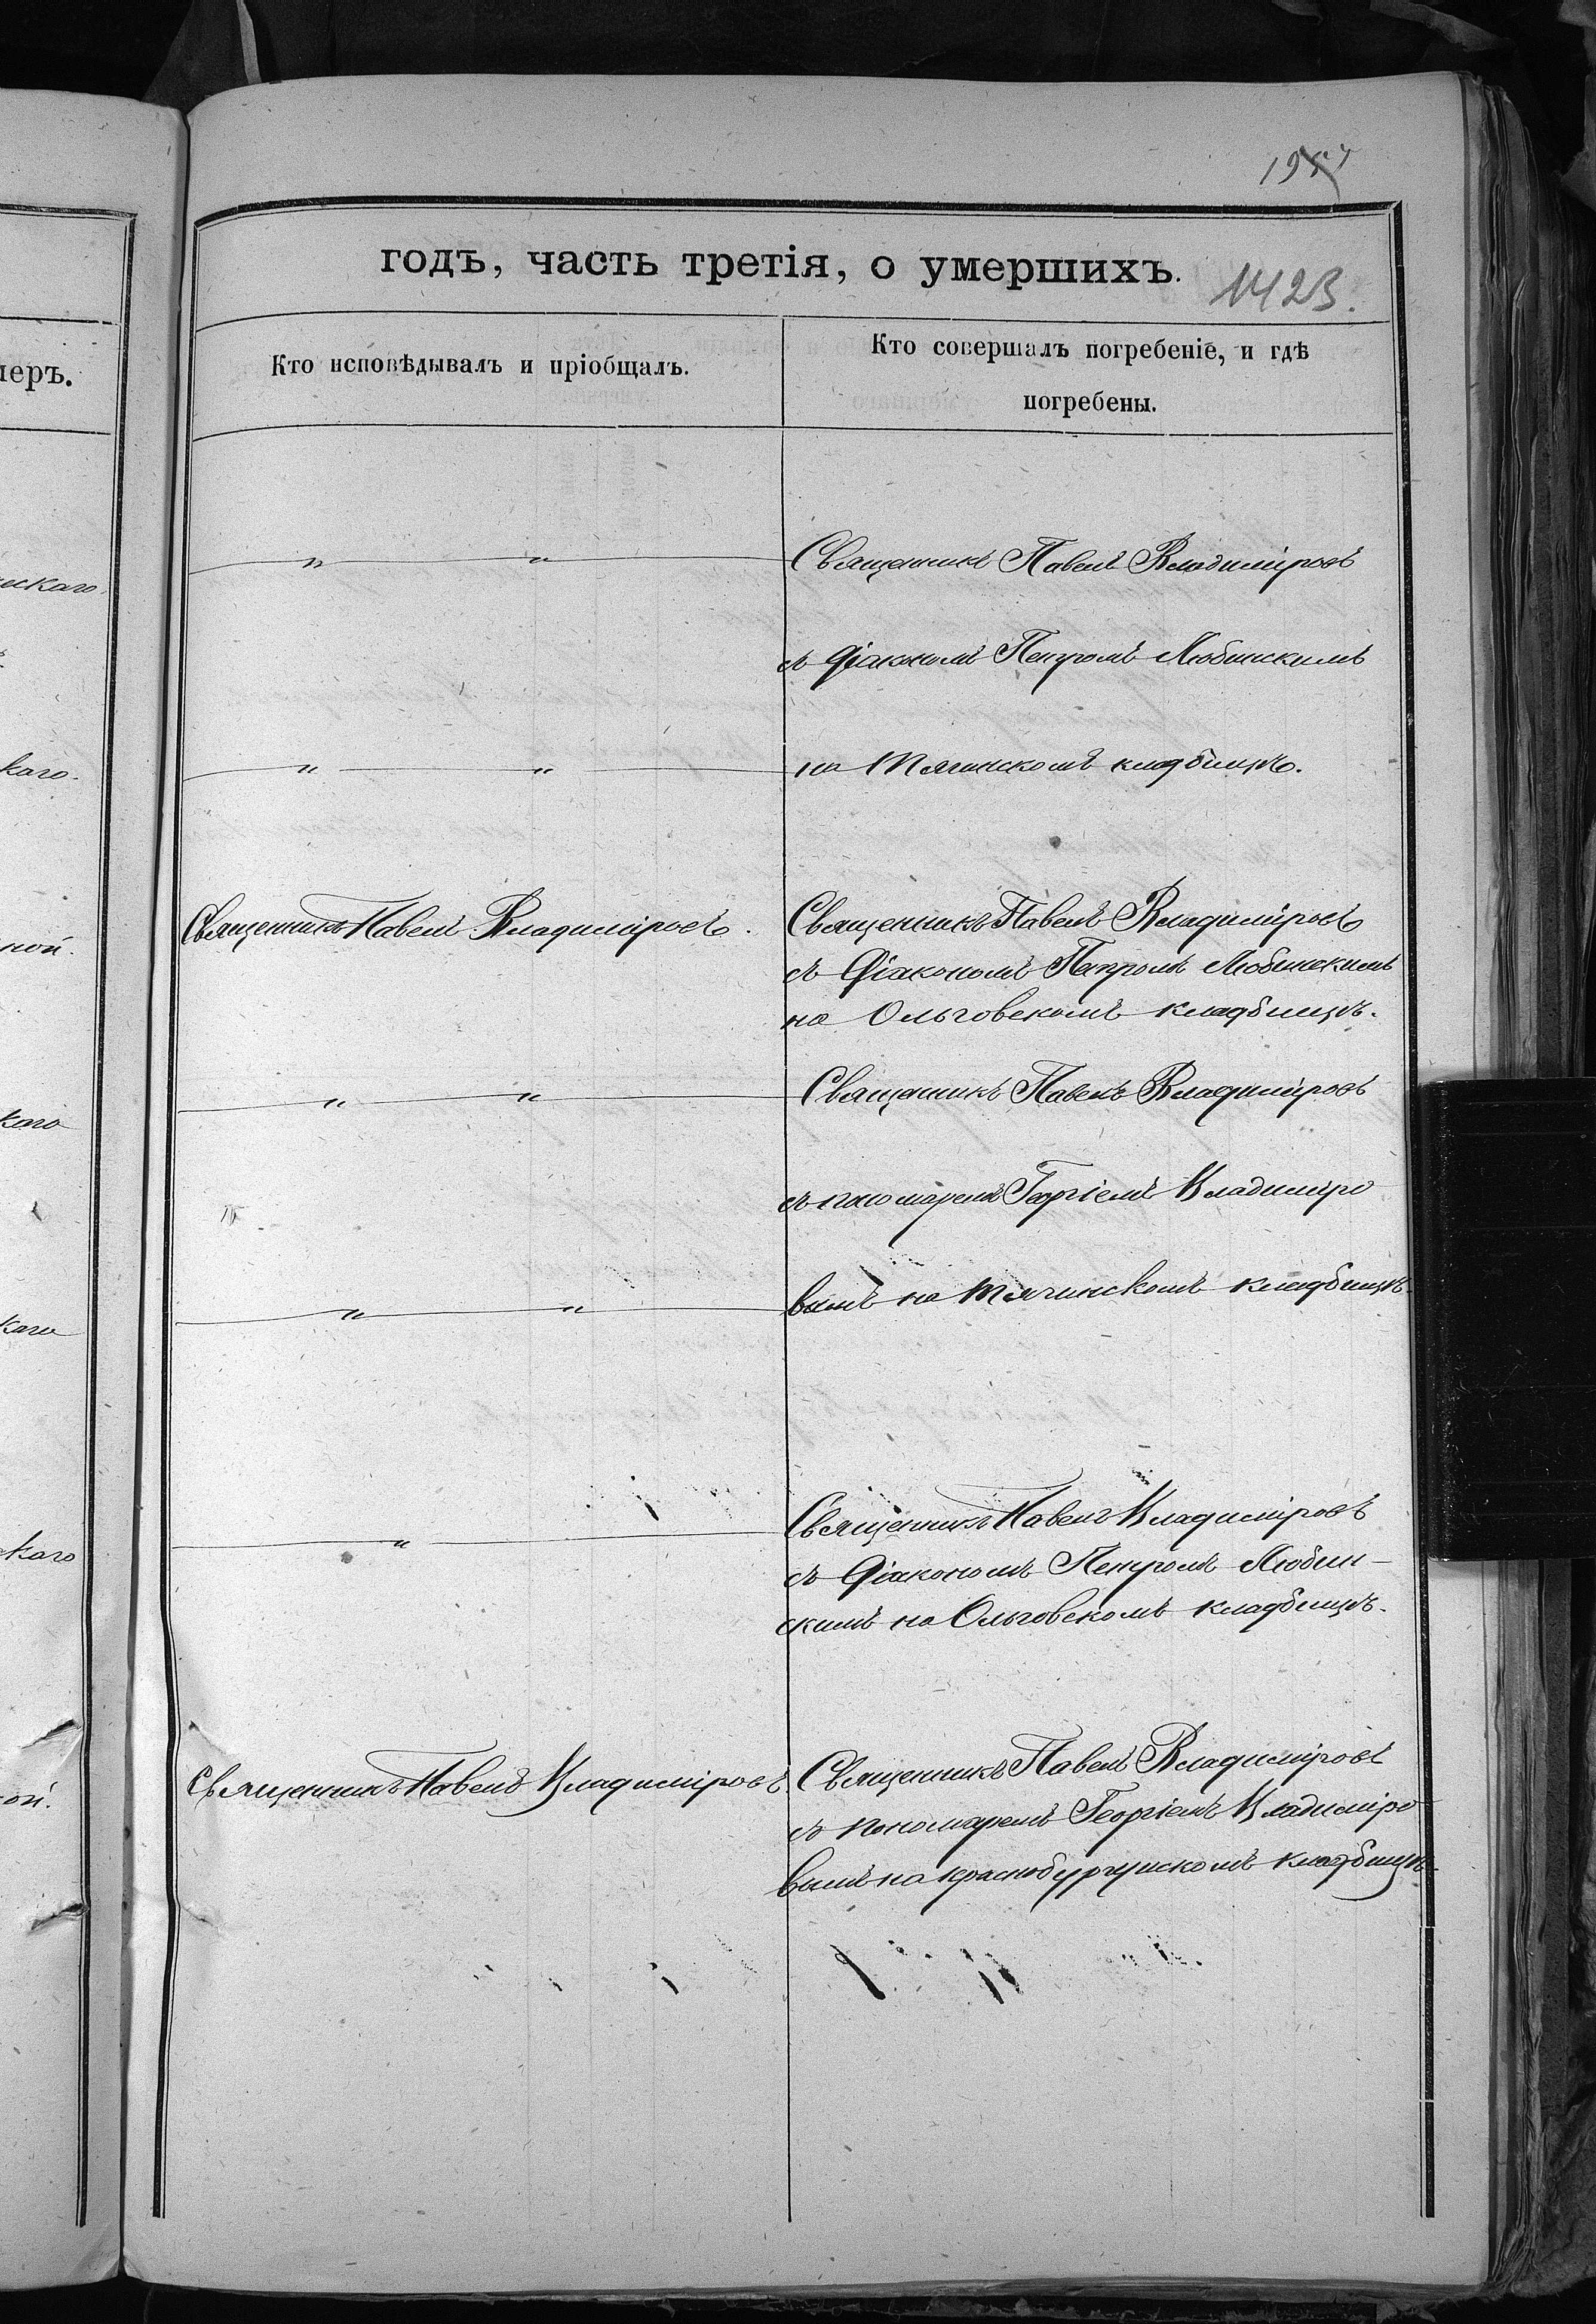 годъ, часть третія, о умершихъ.
1423.
Кто исповѣдывалъ и пріобщалъ.
Кто совершалъ погребеніе, и гдѣ
погребены.
меръ.
Священникъ Павелъ Владиміровъ
съ Діакономъ Петромъ Любинскимъ
на Тягинскомъ кладбищѣ.
каго.
Священникъ Павелъ Владиміровъ.
Священникъ Павелъ Владиміровъ
съ Діакономъ Петромъ Любинскимъ
на Ольговскомъ кладбищѣ.
ной.
Священникъ Павелъ Владиміровъ
каго
съ пономаремъ Георгіемъ Владиміро
вымъ на Тягинскомъ кладбищѣ.
каго
Священникъ Павелъ Владиміровъ
съ Діакономъ Петромъ Любин-
скимъ на Ольговскомъ кладбищѣ.
скаго
Священникъ Павелъ Владиміровъ.
Священникъ Павелъ Владиміровъ
съ пономаремъ Георгіемъ Владиміро
вымъ на кладбищѣ.
ой.